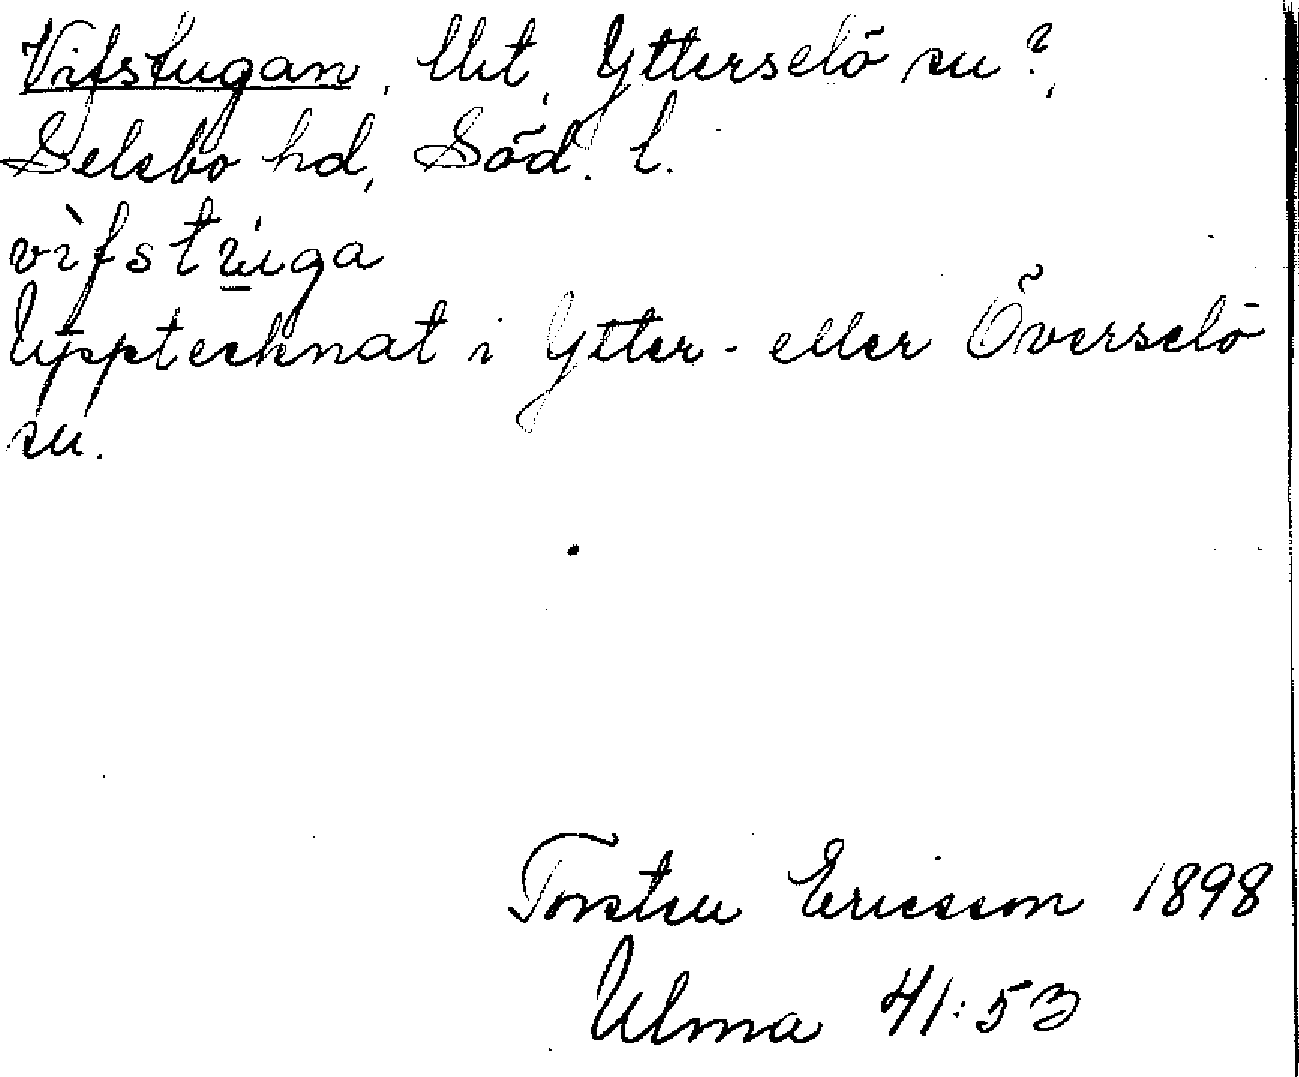 Vifstugan, Ytterselö sn?,
Selebo hd, Söd. l.
vìfstúga
Upptecknat i Ytter- eller Överselö
sn.
Torsten Ericsson 1898
Ulma 41:53